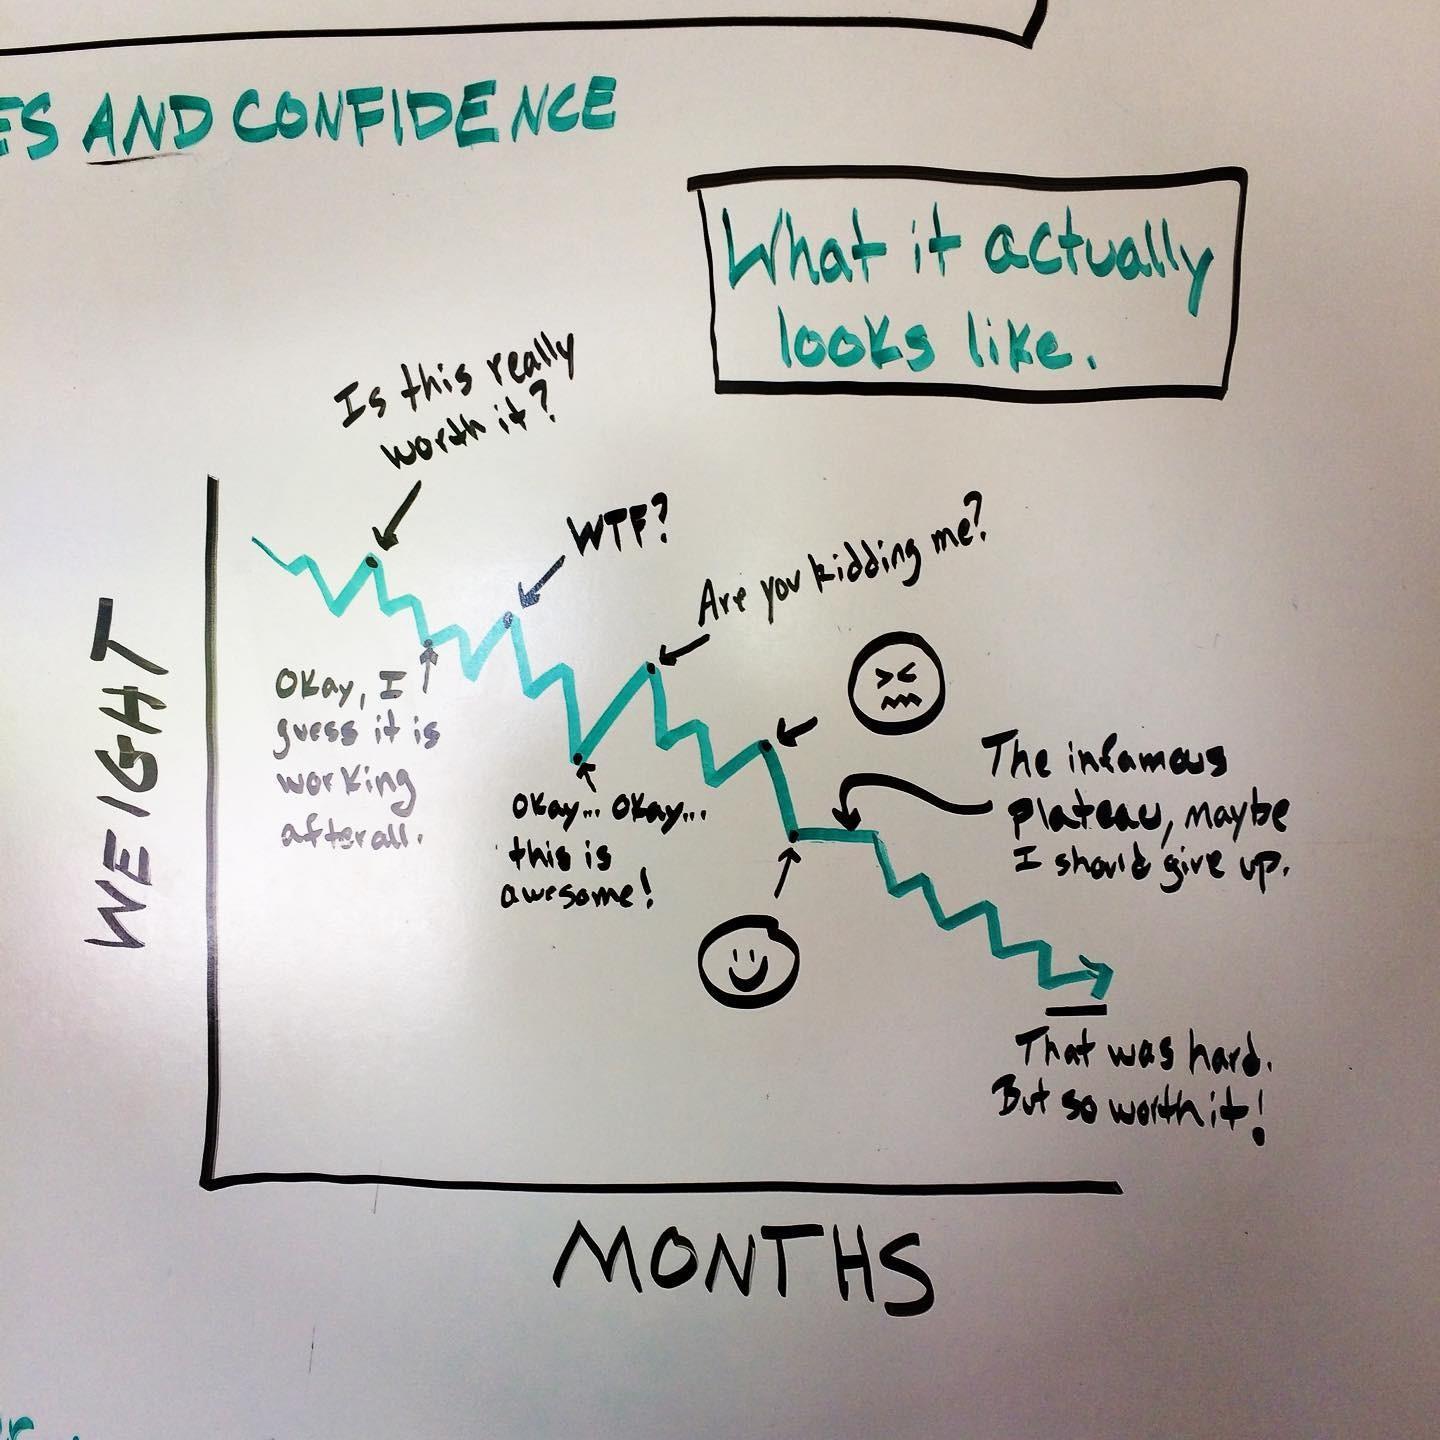 ES AND CONFIDENCE
What it actually
looks like.
Is this really
worth it?
WTF?
Are you kidding me?
Okay, I
guess it is
working
after all.
Okay... Okay...
this is
awesome!
The infamous
plateau, maybe
I should give up.
That was hard.
But so worth it!
WEIGHT
MONTHS